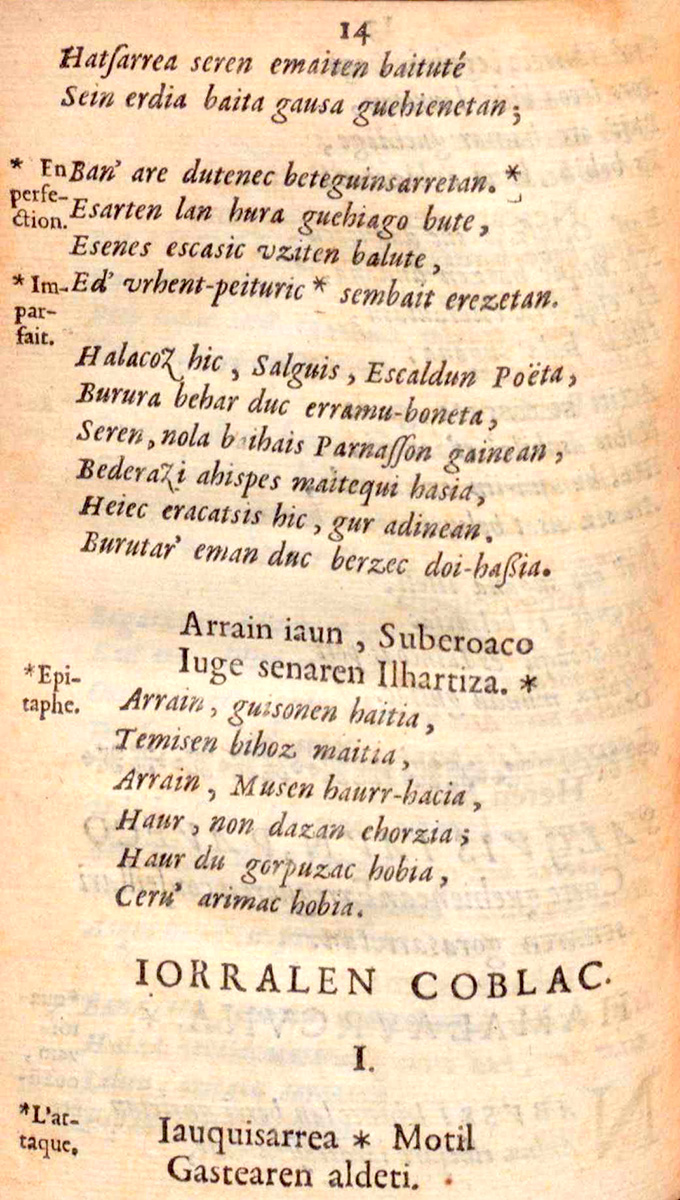 14
Hatſarrea seren emaiten baituté
Sein erdia baita gausa guehienetan;
* En perfe-ction.
Ban' are dutenec beteguinsarretan. *
Esarten lan hura guehiago bute,
Esenes escasic vziten balute,
* Im-par-fait.
Ed' vrhent-peituric * sembait erezetan.
Halacoz hic, Salguis, Escaldun Poëta,
Burura behar duc erramu-boneta,
Seren, nola b ihais Parnaſſon gainean,
Bederazi ahispes maitequi hasia,
Heiec eracatsis hic, gur adinean.
Burutar' eman duc berzec doi-haſsia.
Arrain iaun, Suberoaco
Iuge senaren Ilhartiza. *
*Epi-taphe.
Arrain, guisonen haitia,
Temisen bihoz maitia,
Arrain, Musen haurr-hacia,
Haur, non dazan ehorzia;
Haur du gorpuzac hobia,
Ceru' arimac hobia.
IORRALEN COBLAC.
I.
*L'at-taque.
Iauquisarrea * Motil
Gastearen aldeti.